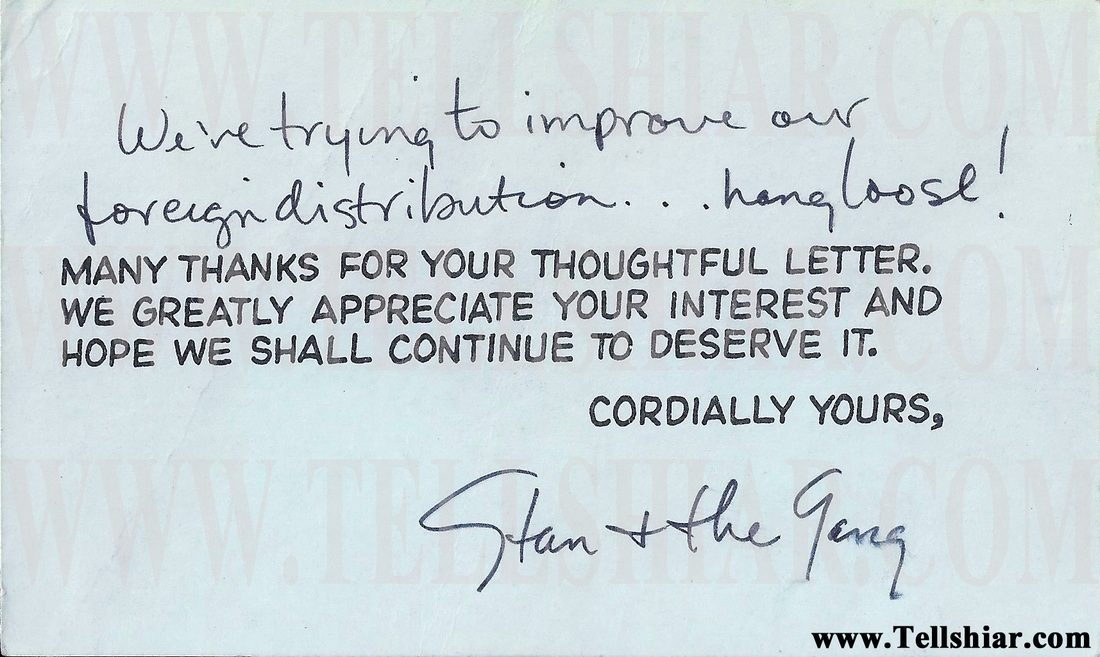 We're trying to improve our
foreign distribution... hang loose!
MANY THANKS FOR YOUR THOUGHTFUL LETTER.
WE GREATLY APPRECIATE YOUR INTEREST AND
HOPE WE SHALL CONTINUE TO DESERVE IT.
CORDIALLY YOURS,
Stan + the Gang
www.Tellshiar.com
WWW.TELLSHIAR.COM
WWW.TELLSHIAR.COM
WWW.TELLSHIAR.COM